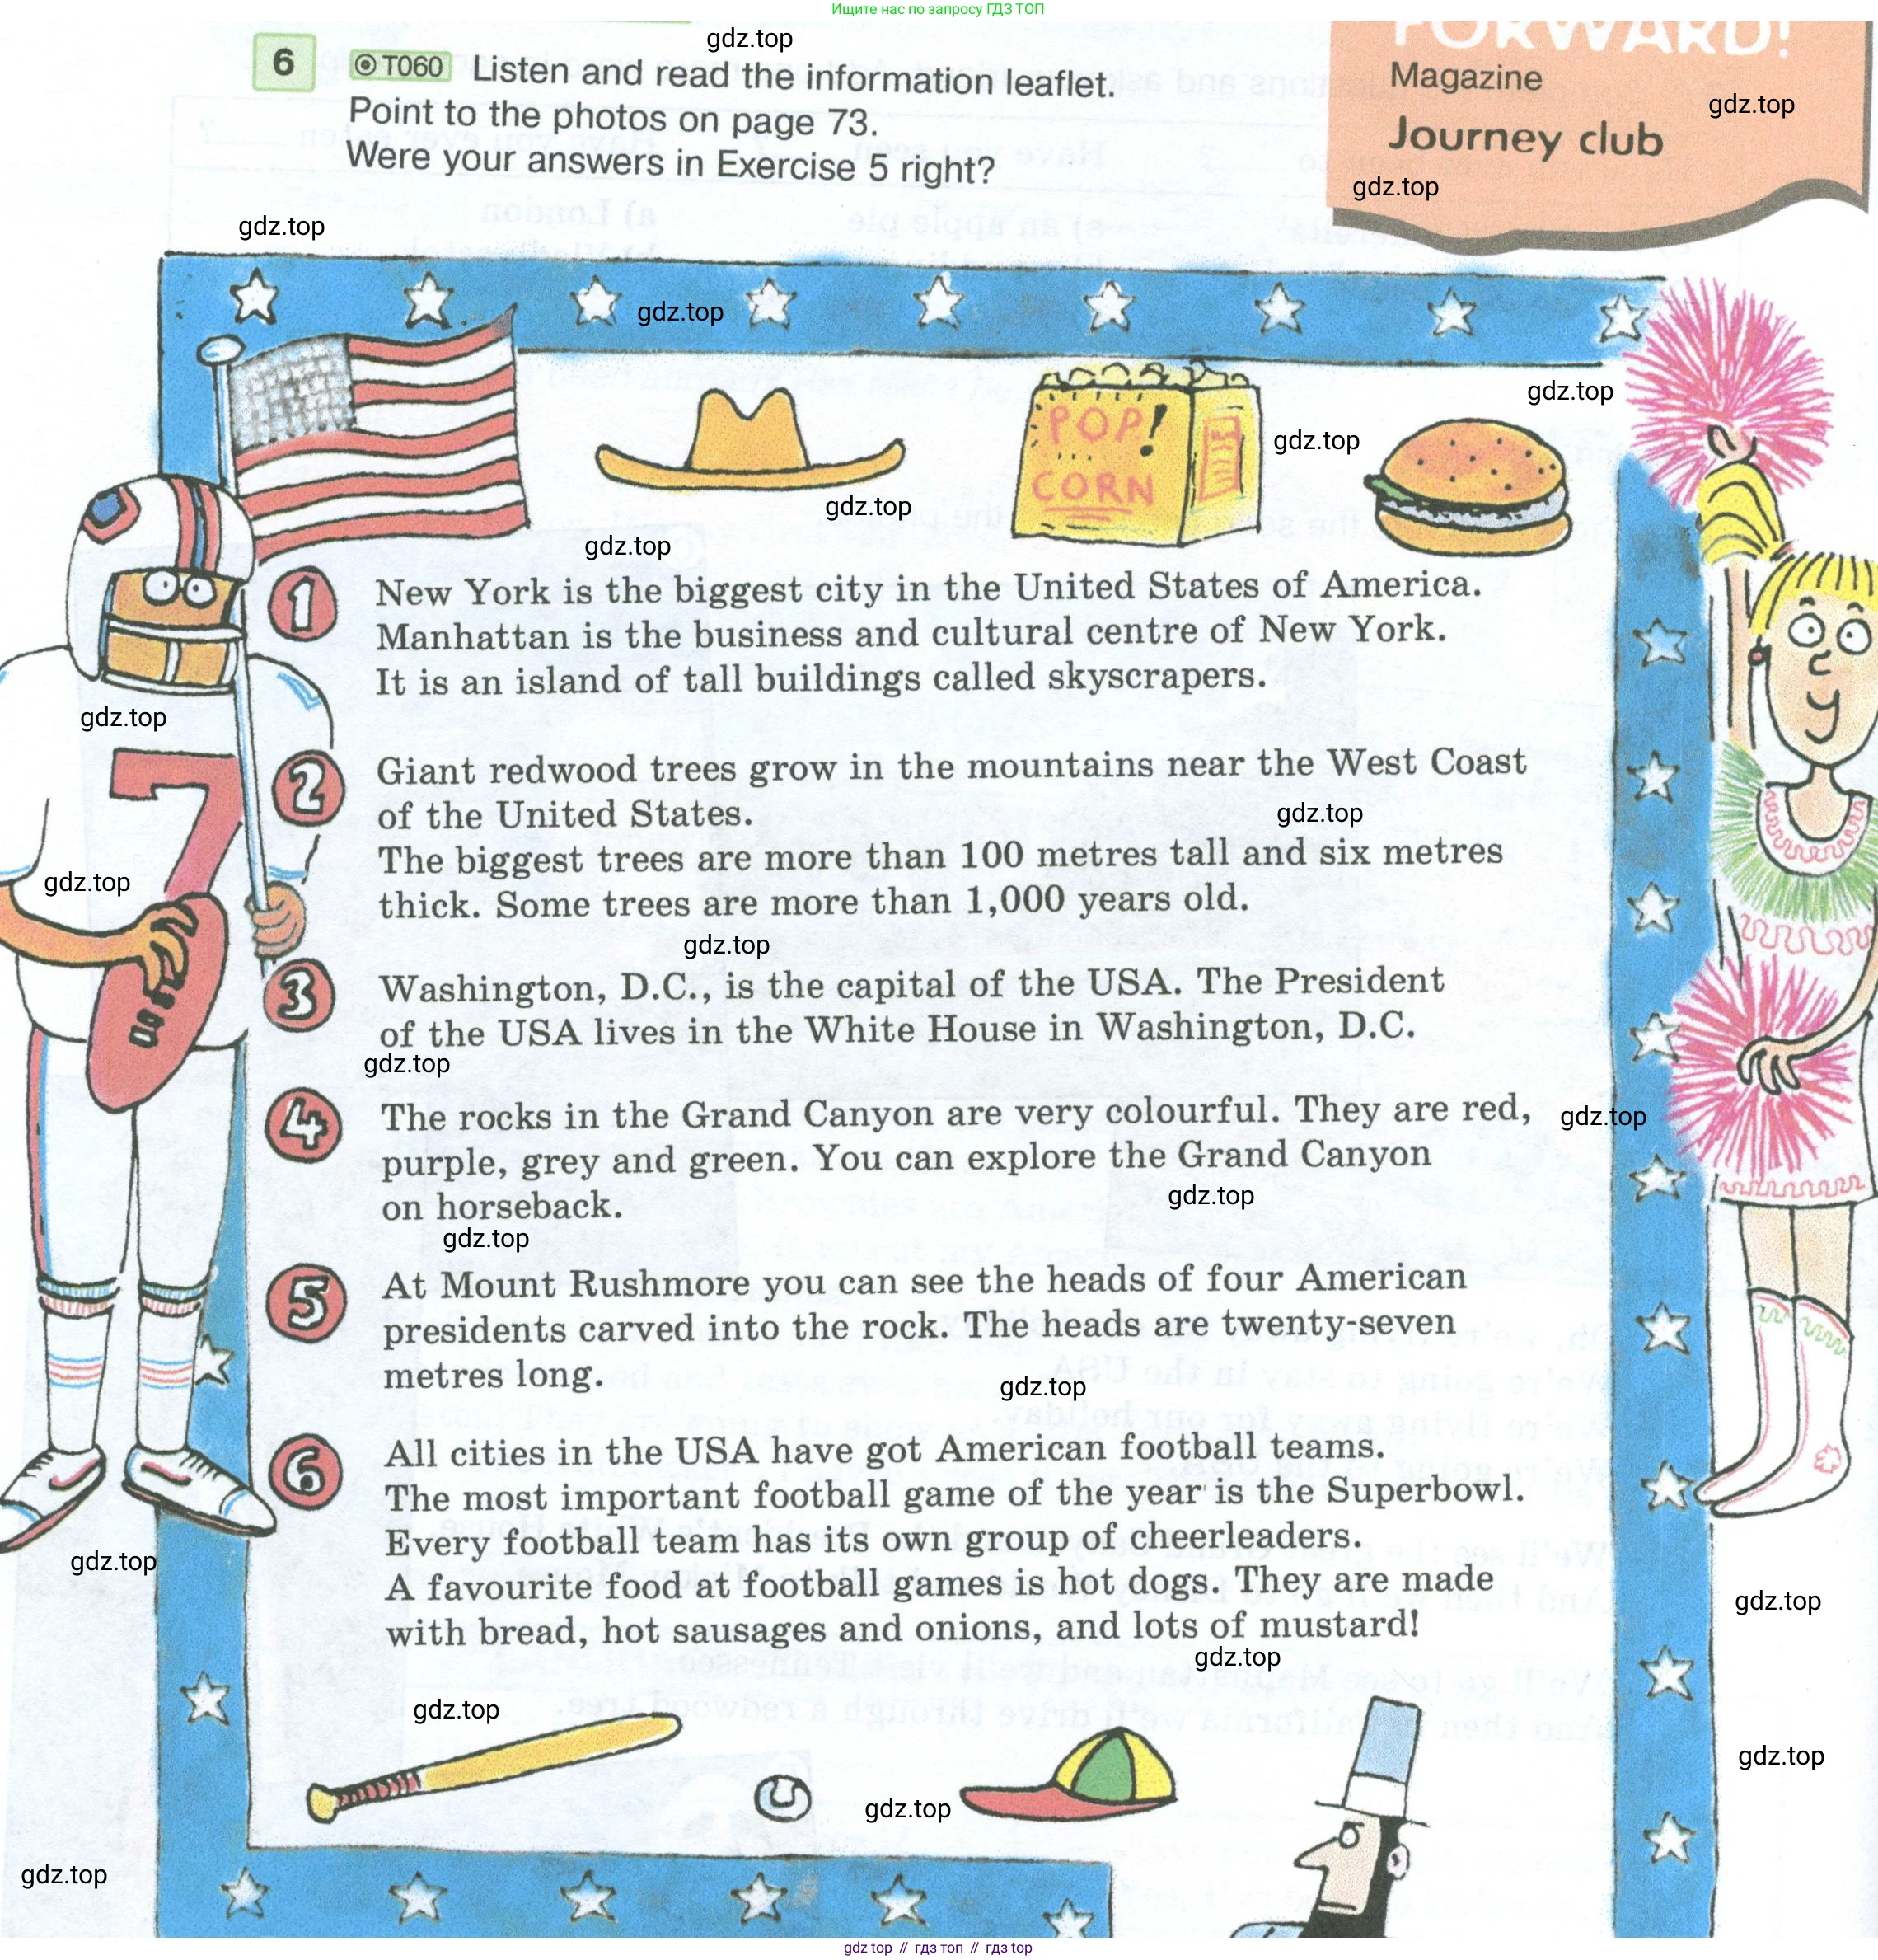 Ищите нас по запросу ГДЗ ТОП
6 T060 Listen and read the information leaflet.
Point to the photos on page 73.
Were your answers in Exercise 5 right?
FORWARD!
Magazine
Journey club
gdz.top
gdz.top
gdz.top
gdz.top
gdz.top
gdz.top
POP!
CORN
gdz.top
gdz.top
gdz.top
1 New York is the biggest city in the United States of America.
Manhattan is the business and cultural centre of New York.
It is an island of tall buildings called skyscrapers.
gdz.top
7
2 Giant redwood trees grow in the mountains near the West Coast
of the United States.
gdz.top
The biggest trees are more than 100 metres tall and six metres
thick. Some trees are more than 1,000 years old.
gdz.top
gdz.top
3 Washington, D.C., is the capital of the USA. The President
of the USA lives in the White House in Washington, D.C.
gdz.top
4 The rocks in the Grand Canyon are very colourful. They are red,
gdz.top
purple, grey and green. You can explore the Grand Canyon
on horseback.
gdz.top
gdz.top
5 At Mount Rushmore you can see the heads of four American
presidents carved into the rock. The heads are twenty-seven
metres long.
gdz.top
6 All cities in the USA have got American football teams.
The most important football game of the year is the Superbowl.
Every football team has its own group of cheerleaders.
A favourite food at football games is hot dogs. They are made
with bread, hot sausages and onions, and lots of mustard!
gdz.top
gdz.top
gdz.top
gdz.top
gdz.top
gdz.top
gdz.top
gdz top // гдз топ // гдз top